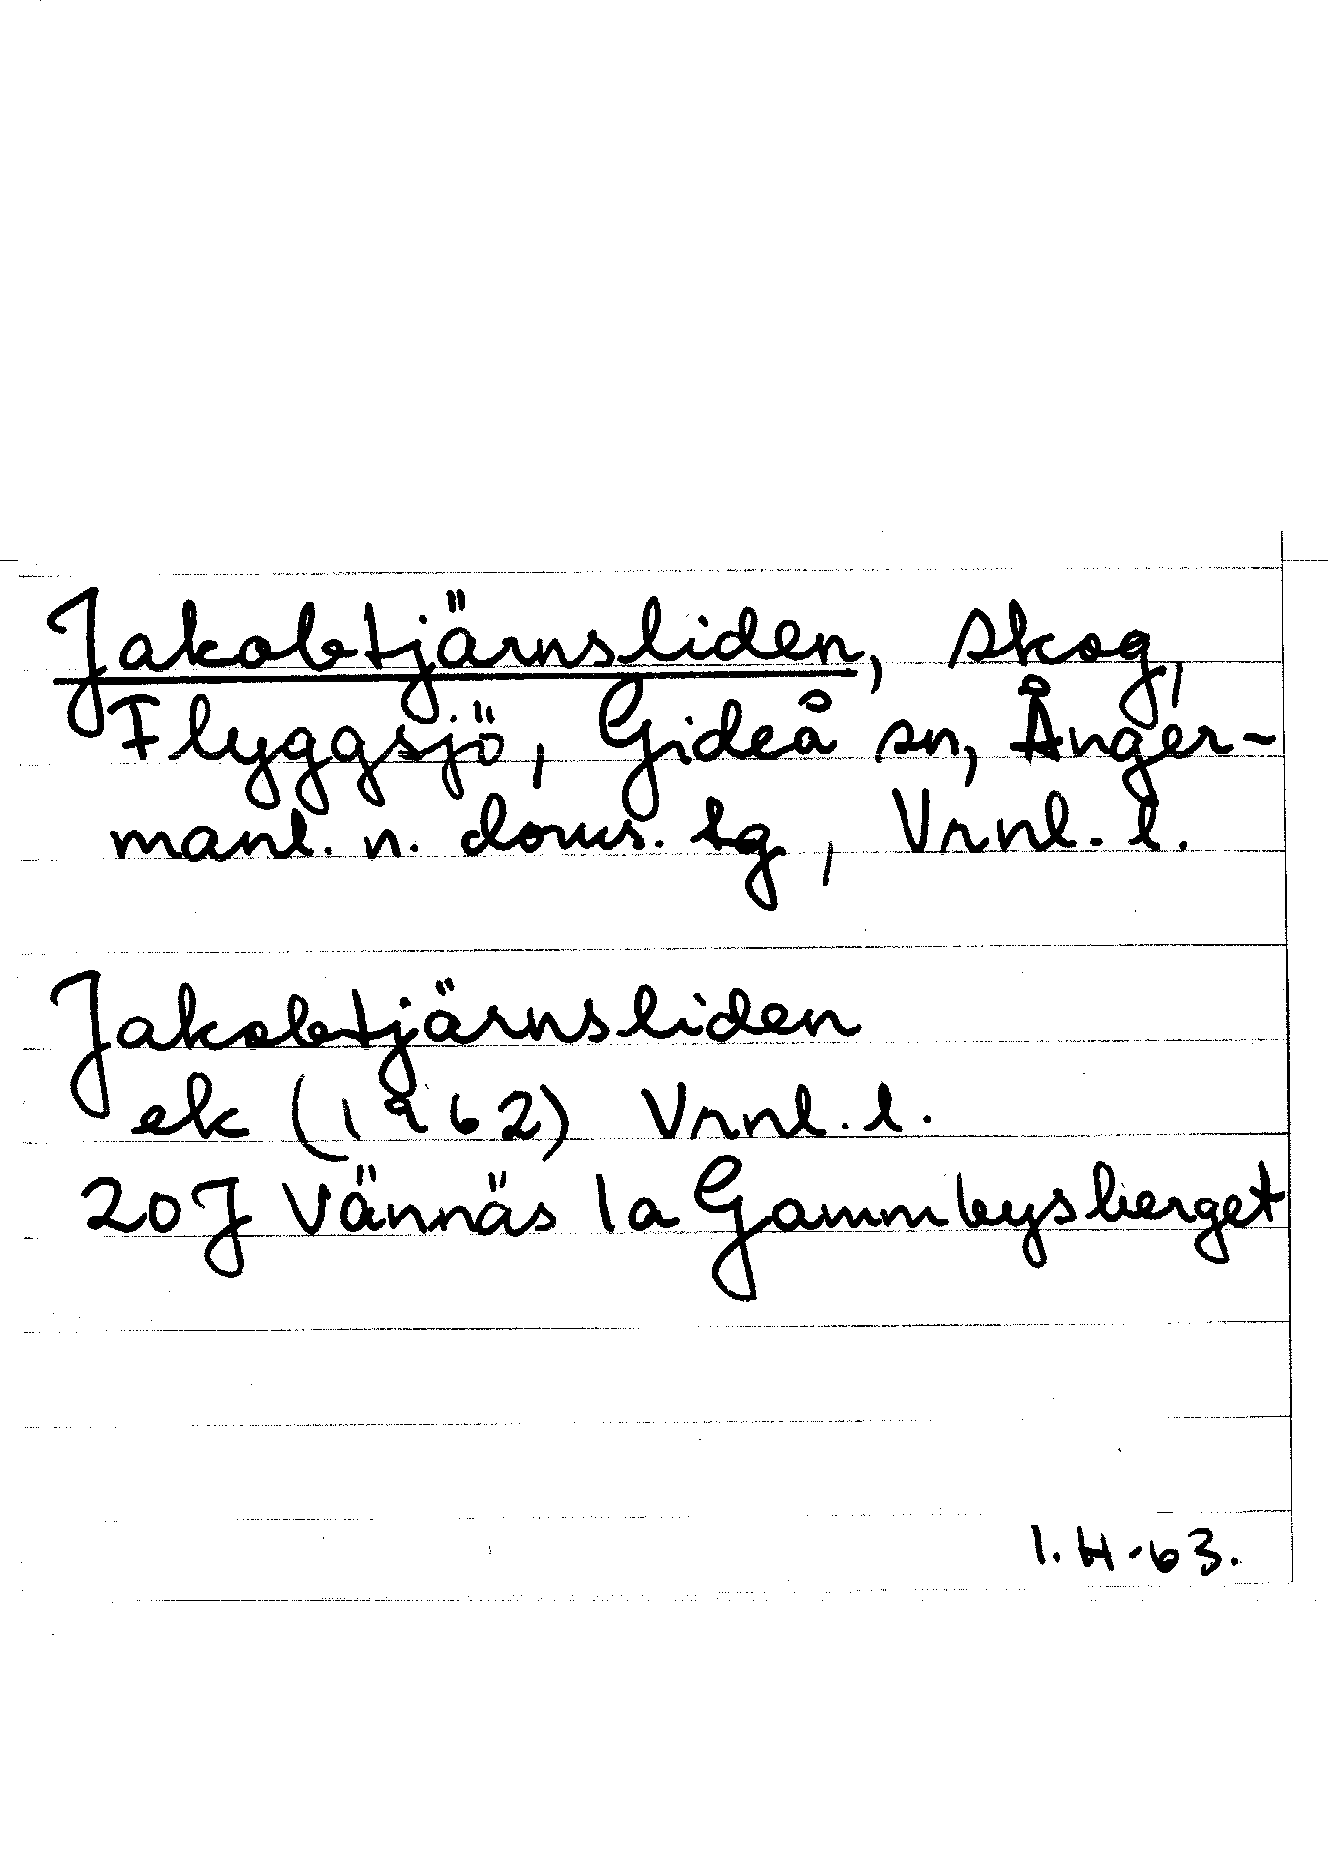 Jakobtjärnsliden, skog,
Flyggsjö, Gideå sn, Ånger-
manl. n. doms. tg, Vrnl. l.
Jakobtjärnsliden
ek (1962) Vrnl. l.
20J Vännäs 1a Gammbysberget
I. H-63.